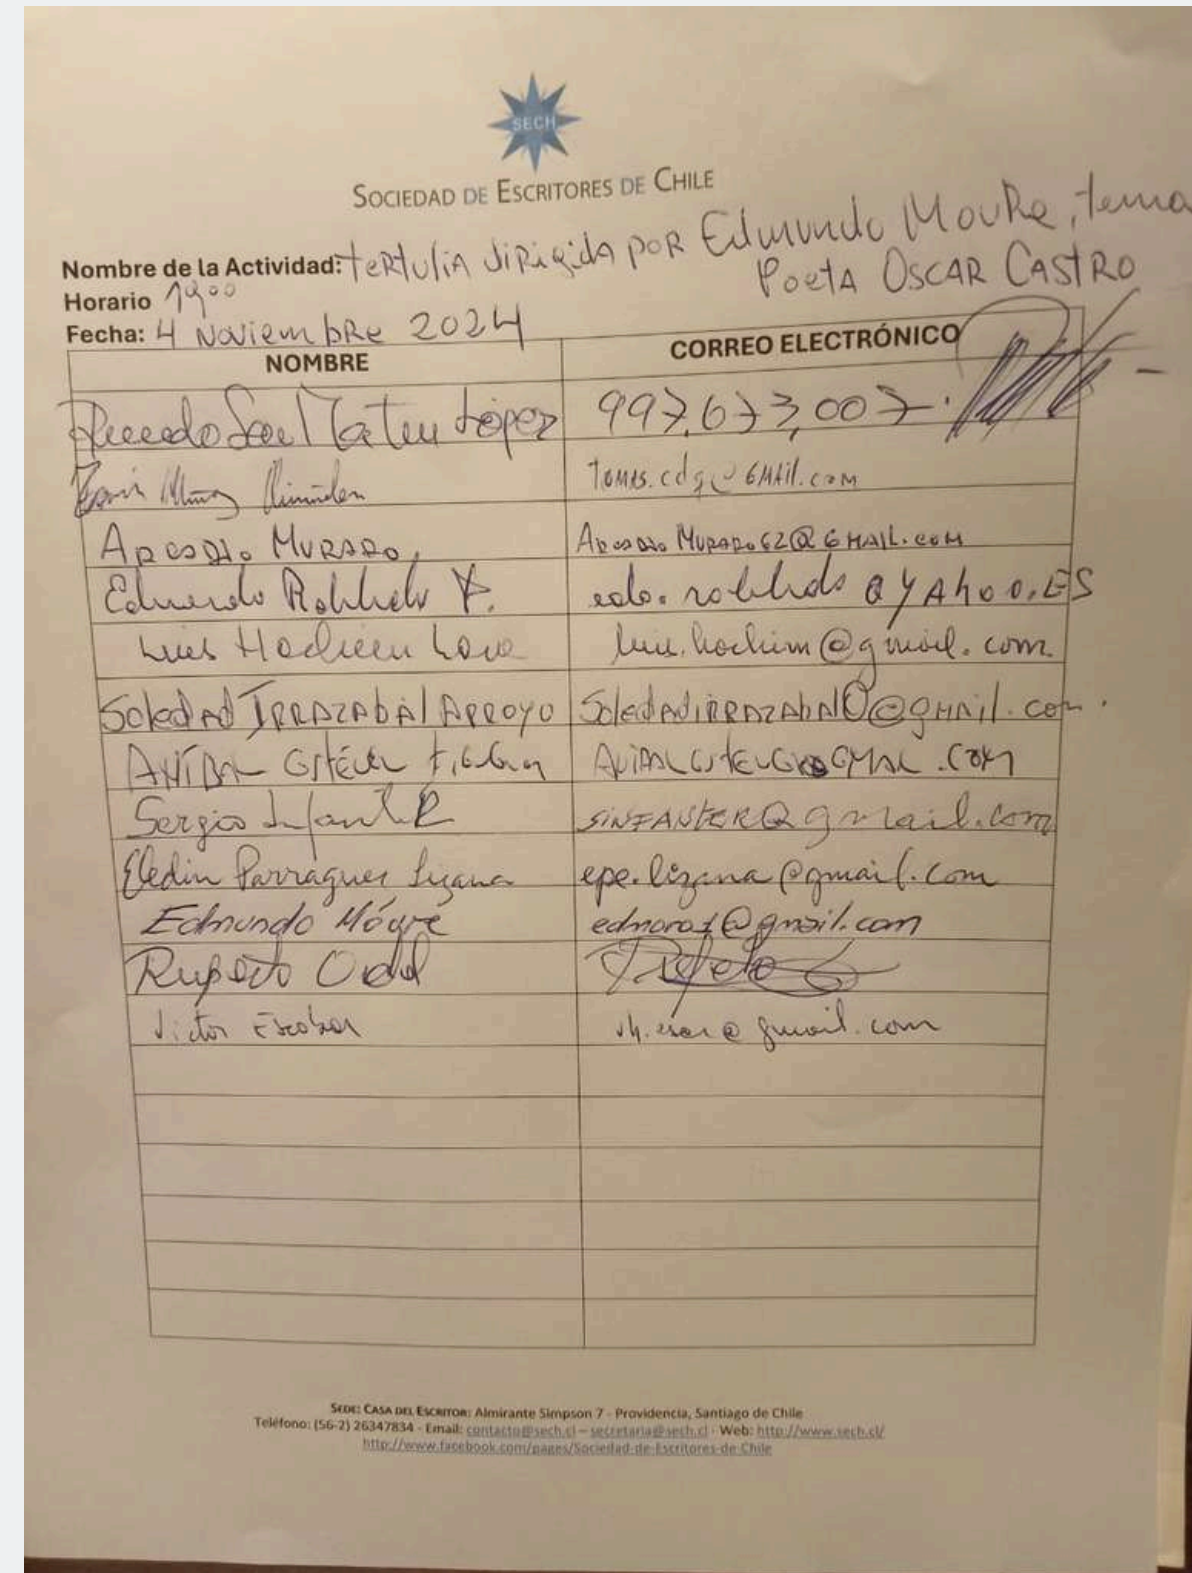 SECH
SOCIEDAD DE ESCRITORES DE CHILE
Nombre de la Actividad: teRtuliA diRigidA poR Edmundo MouRe, tema
PoetA OSCAR CASTRO
Horario 19:00
Fecha: 4 NoviembRe 2024
NOMBRE CORREO ELECTRÓNICO
López 997.673,007.
Muñoz tomas.cdg@GMAil.com
ARCADIO MURARO
Eduardo @YAhoo.ES
Luis luis.hochim@gmail.com
SoledAd IRRAZAbAl ARROYO SoledAdiRRAZAbAl0@gMAil.com.
ANÍBAL .COM
Sergio Infante R SINFANTER@gmail.com
Eledin Parraguez Lizana epe.lizana@gmail.com
Edmundo Móure edmoro1@gmail.com
Ruperto
Victor Escobar @gmail.com
SEDE: CASA DEL ESCRITOR: Almirante Simpson 7 - Providencia, Santiago de Chile
Teléfono: (56-2) 26347834 - Email: contacto@sech.cl – secretaria@sech.cl - Web: http://www.sech.cl/
http://www.facebook.com/pages/Sociedad-de-Escritores-de-Chile